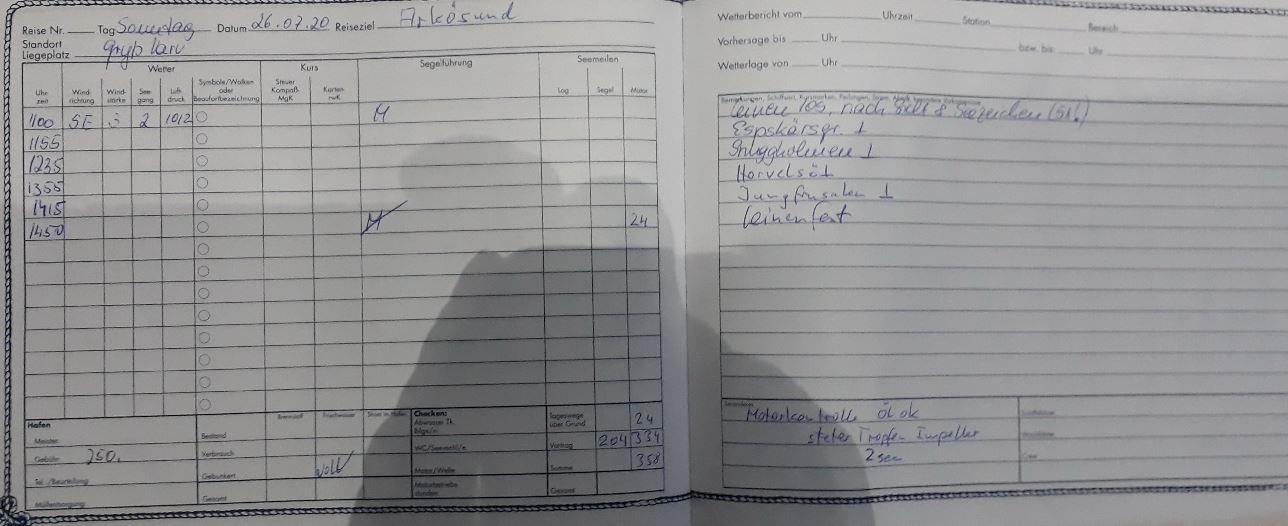 Reise Nr. Tag Sonntag Datum 26.07.20 Reiseziel Arkösund
Standort
Liegeplatz Gryt Varv
Wetter Kurs Segelführung Seemeilen
Uhr zeit Wind richtung Wind stärke See gang Luft druck Symbole/Wolken oder Beaufortbezeichnung Steuer Kompaß MgK Karten rwK Log Segel Motor
1100 SE 3 2 1012 M
1155
1235
1355
1415
1450 M 24
Hafen
Meister
Gebühr 250,
Tel./Beurteilung
Müllentsorgung
Brennstoff Frischwasser Strom im Hafen
Bestand
Verbrauch
Gebunkert voll
Gesamt
Checken:
Abwasser Tk.
Bilge/n
WC/Seeventil/e
Motor/Welle
Motorbetriebs stunden
Tageswege über Grund 24
Vortrag 204 334
Summe 358
Gesamt
Wetterbericht vom Uhrzeit Station Bereich
Vorhersage bis Uhr bzw. bis Uhr
Wetterlage von Uhr
Leinen los, nach Seezeichen
Espskärsgr. 1
1
Horvelsö 1
1
Leinen fest
Besonderes
Motorkontrolle Öl ok
steter Tropfen Impeller
2 sec